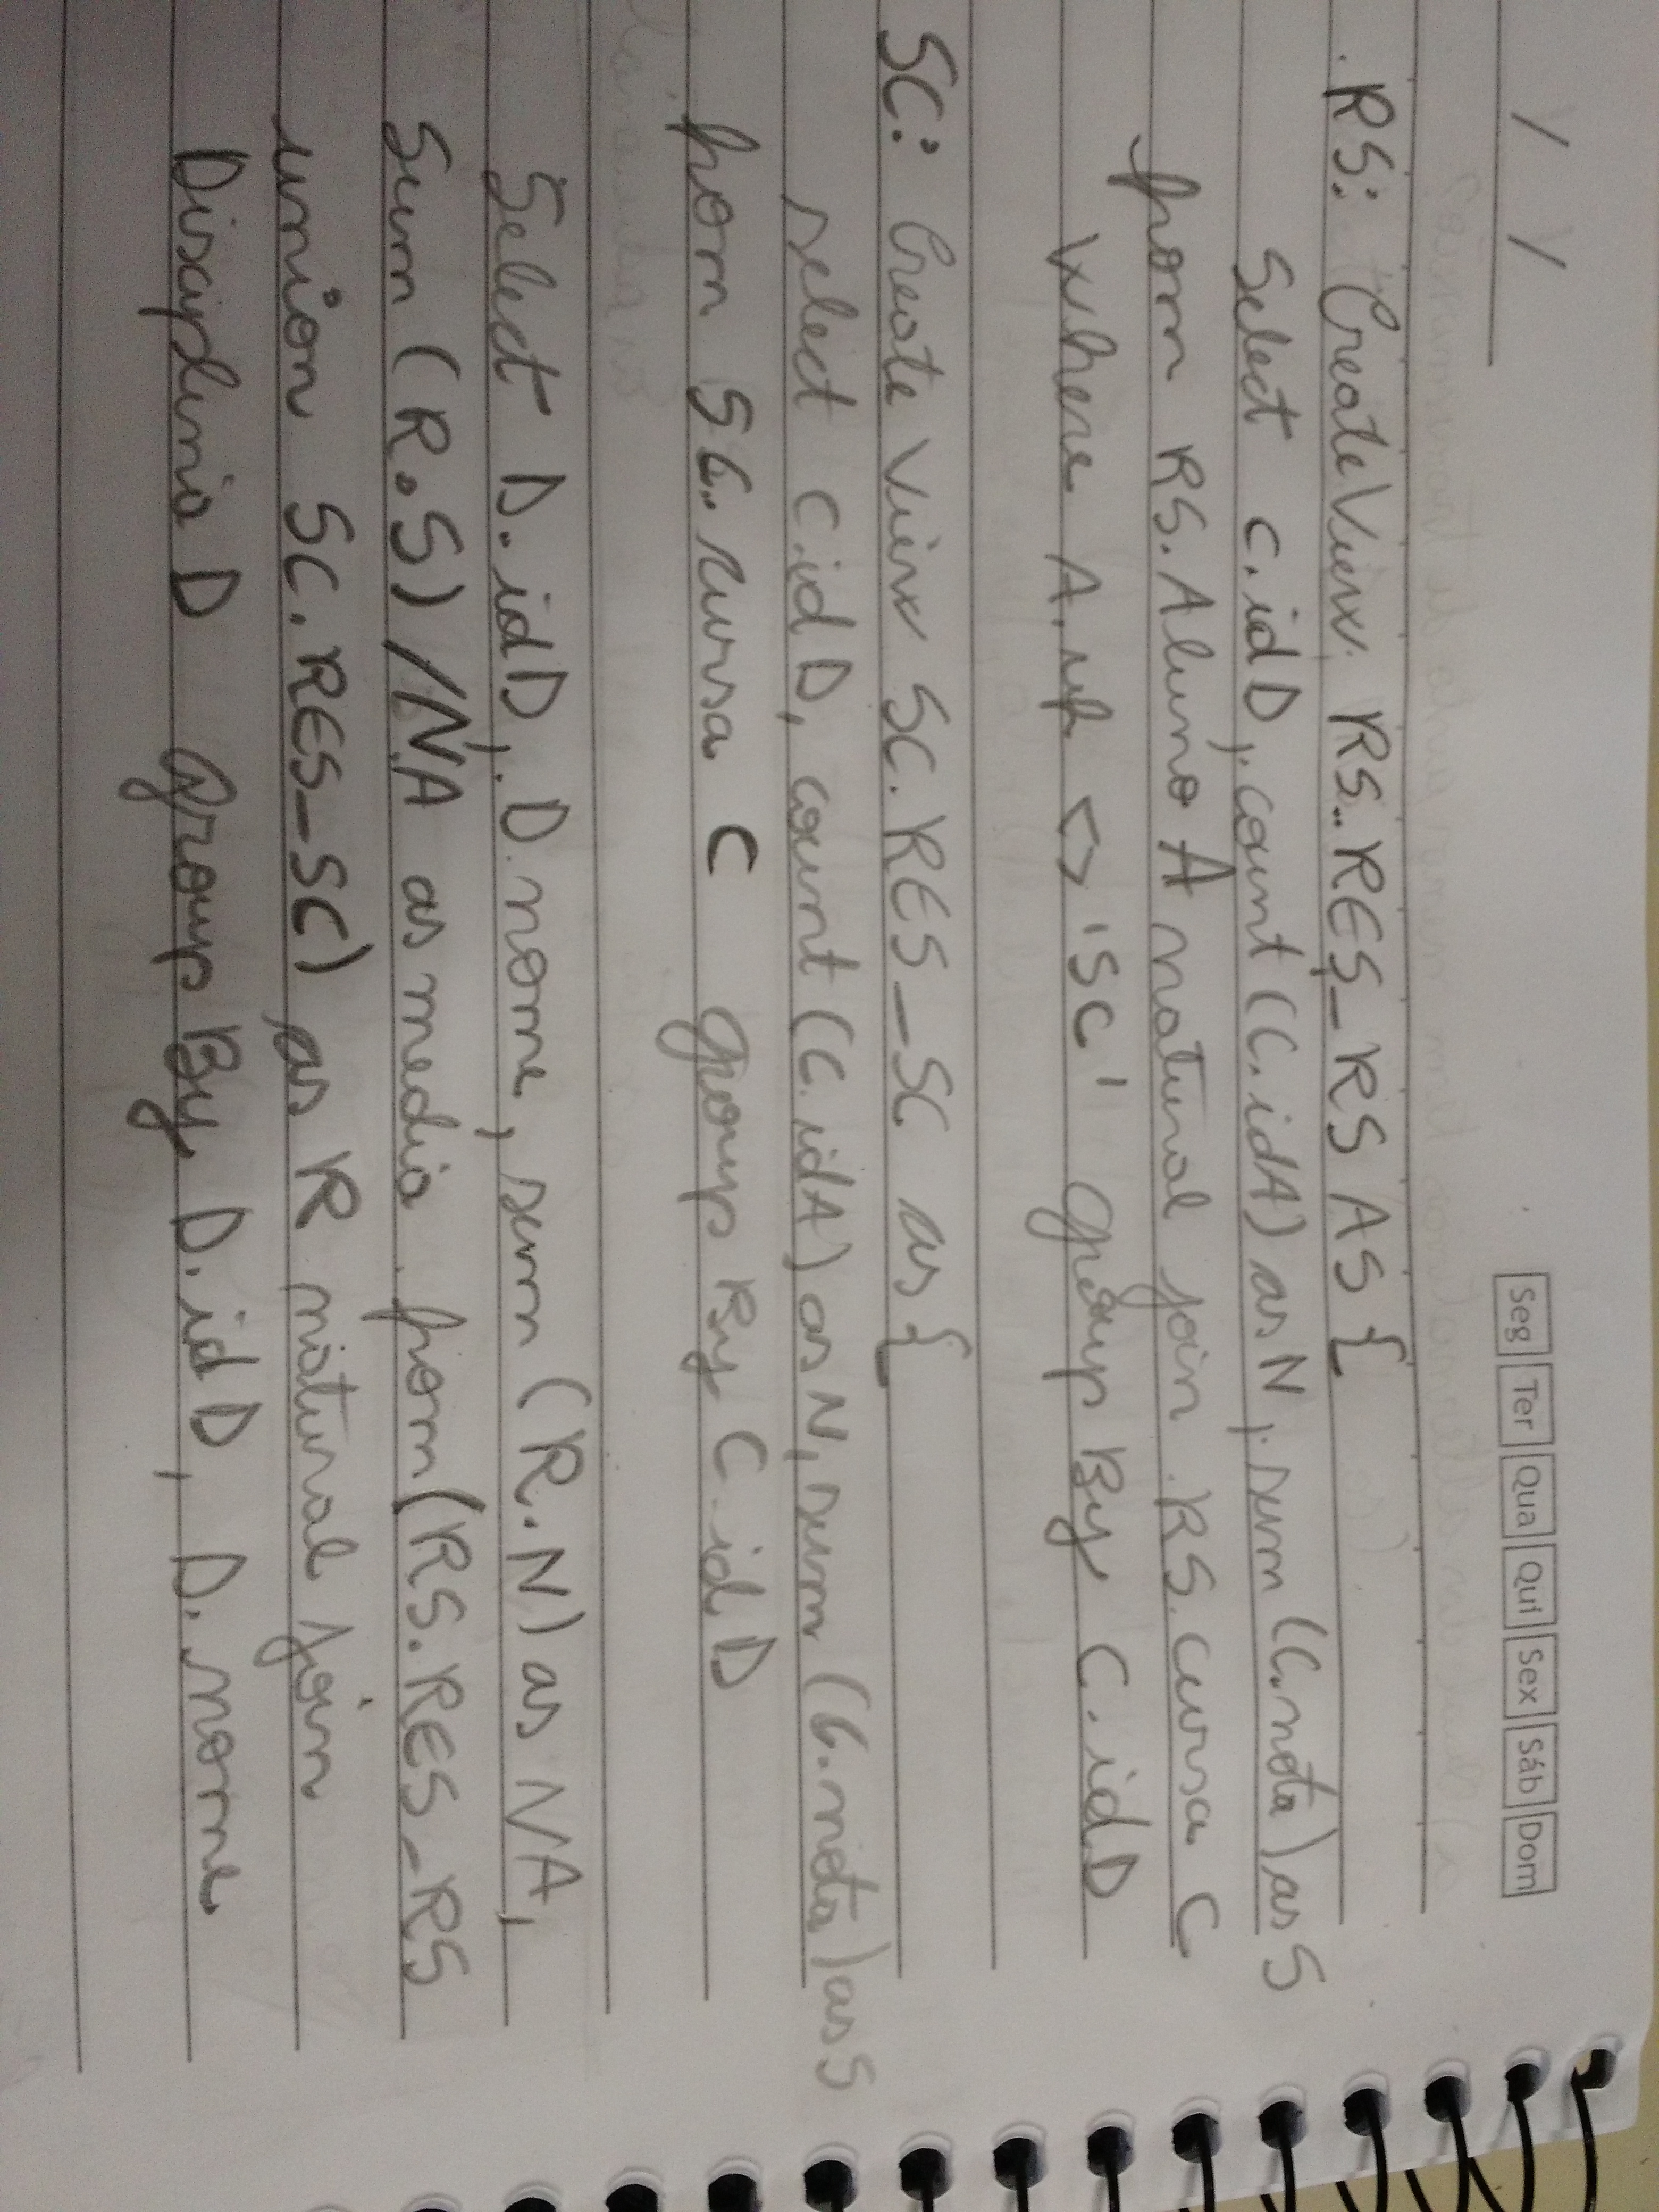 / /
Seg Ter Qua Qui Sex Sáb Dom
RS: Create View RS.RES_RS AS {
Select c.idD, count (C.idA) as N, sum (C.nota) as S
from RS.Aluno A natural join RS.cursa C
Where A.uf <> 'SC' group By C.idD
SC: Create View SC.RES_SC as {
select C.idD, count (C.idA) as N, sum (C.nota) as S
from SC.cursa C group By C.idD
Select D.idD, D.nome, sum (R.N) as NA,
Sum (R.S) /NA as media from (RS.RES_RS
union SC.RES_SC) as R natural join
Disciplina D group By D.idD, D.nome